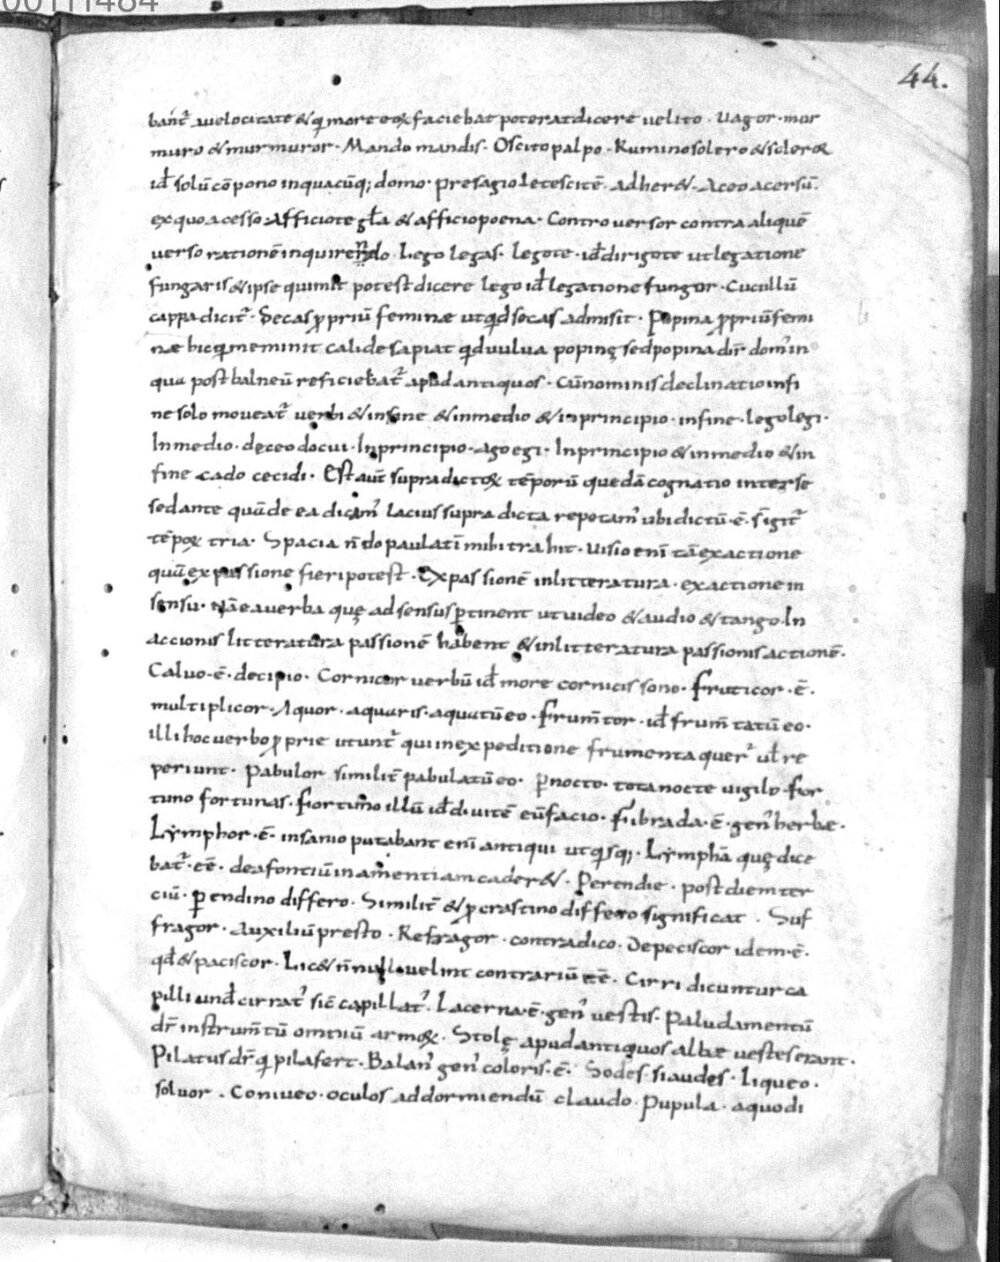 00111484
44.
bant᷑ auelocitate & q᷑ more eoꝝ faciebat poterat dicere uelito · uagor · mur
muro & murmuror · Mando mandis · Oscito palpo · Rumino solero & scleroꝝ
id᷑ solū cōpono inquacūq; domo · presagio letescitē · adher& · Aceo acersū·
ex quo acesso · Afficiote gła & afficio poena · Controuersor contra aliquē
uerso rationē inquirendo · Lego legas · legote · id᷑ dirigo te ut legatione
fungaris & ipse qui mit᷑ potest dicere lego id᷑ legatione fungor · Cucullū
cappa dicit᷑ · Secas ꝓpriū feminæ ut qd᷑ socas admisit · Popina ꝓpriū femi
næ hic q᷑ meminit calide sapiat qd᷑ uulua popinę sed popina dr̄ dom᷒ in
qua post balneū reficiebat᷑ apud antiquos · Cū nominis declinatio infi
ne solo moueat᷑ uerbi & in fine & in medio & in principio · in fine · lego legi ·
In medio · doceo docui · In principio · ago egi · In principio & in medio & in
fine cado cecidi · Est aut̄ supradictoꝝ tēporū quedā cognatio inter se
sed ante quā de ea dicam᷒ lacius supra dicta repetam᷒ ubi dictū · ē · sīgit᷑
tēpoꝝ tria · Spacia n̄do paulatī mihi trahit · Uisio enī tā ex actione
quā ex passione fieri potest · Ex passionē in litteratura · ex actione in
sensu · Nā ea uerba quę ad sensus ꝑtinent ut uideo & audio & tango · In
accionis litteratura passionē habent & in litteratura passionis actionē ·
Caluo · ē · decipio · Cornicor uerbū id᷑ more cornicis sono · fruticor · ē ·
multiplicor · Aquor · aquaris · aquatū eo · frum̄tor · id᷑ frum̄tatū eo ·
illi hoc uerbo ꝓprie utunt᷑ qui in expeditione frumenta quer᷑ uł re
periunt · Pabulor similit̄ pabulatū eo · ꝑnocto · tota nocte uigilo · for
tuno fortunas · fortuno illū id᷑ diuitē eū facio · fibrada · ē · gen᷒ herbę ·
Lymphor · ē · insanio putabant enī antiqui ut q᷑sq; · Lymphā quę dice
bat᷑ · eē · dea fontiū in amentiam cader& · Perendie · post diem ter
ciū · ꝑendino differo · Similit̄ & ꝓcrastino differo significat · Suf
fragor · Auxiliū presto · Refragor · contradico · Depeciscor idem · ē ·
qd᷑ & paciscor · Lic& n̄nulli uelint contrariū eē · Cirri dicuntur ca
pilli und᷑ cirrat᷒ sic̄ capillat᷒ · Lacerna · ē · gen᷒ uestis · Paludamentū
dr̄ instrum̄tū omniū armoꝝ · Stolę apud antiquos albæ uestes erant ·
Pilatus dr̄ q᷑ pila fert · Balan᷒ gen᷒ coloris · ē · Sodes · si audes · Liqueo ·
soluor · Coniueo · oculos ad dormiendū claudo · Pupula · a quo di